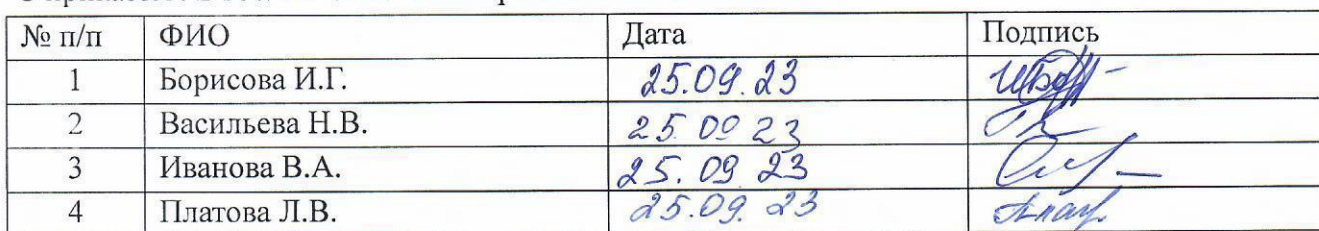 № п/п ФИО Дата Подпись
1 Борисова И.Г. 25.09.23
2 Васильева Н.В. 25 09 23
3 Иванова В.А. 25.09 23
4 Платова Л.В. 25.09. 23